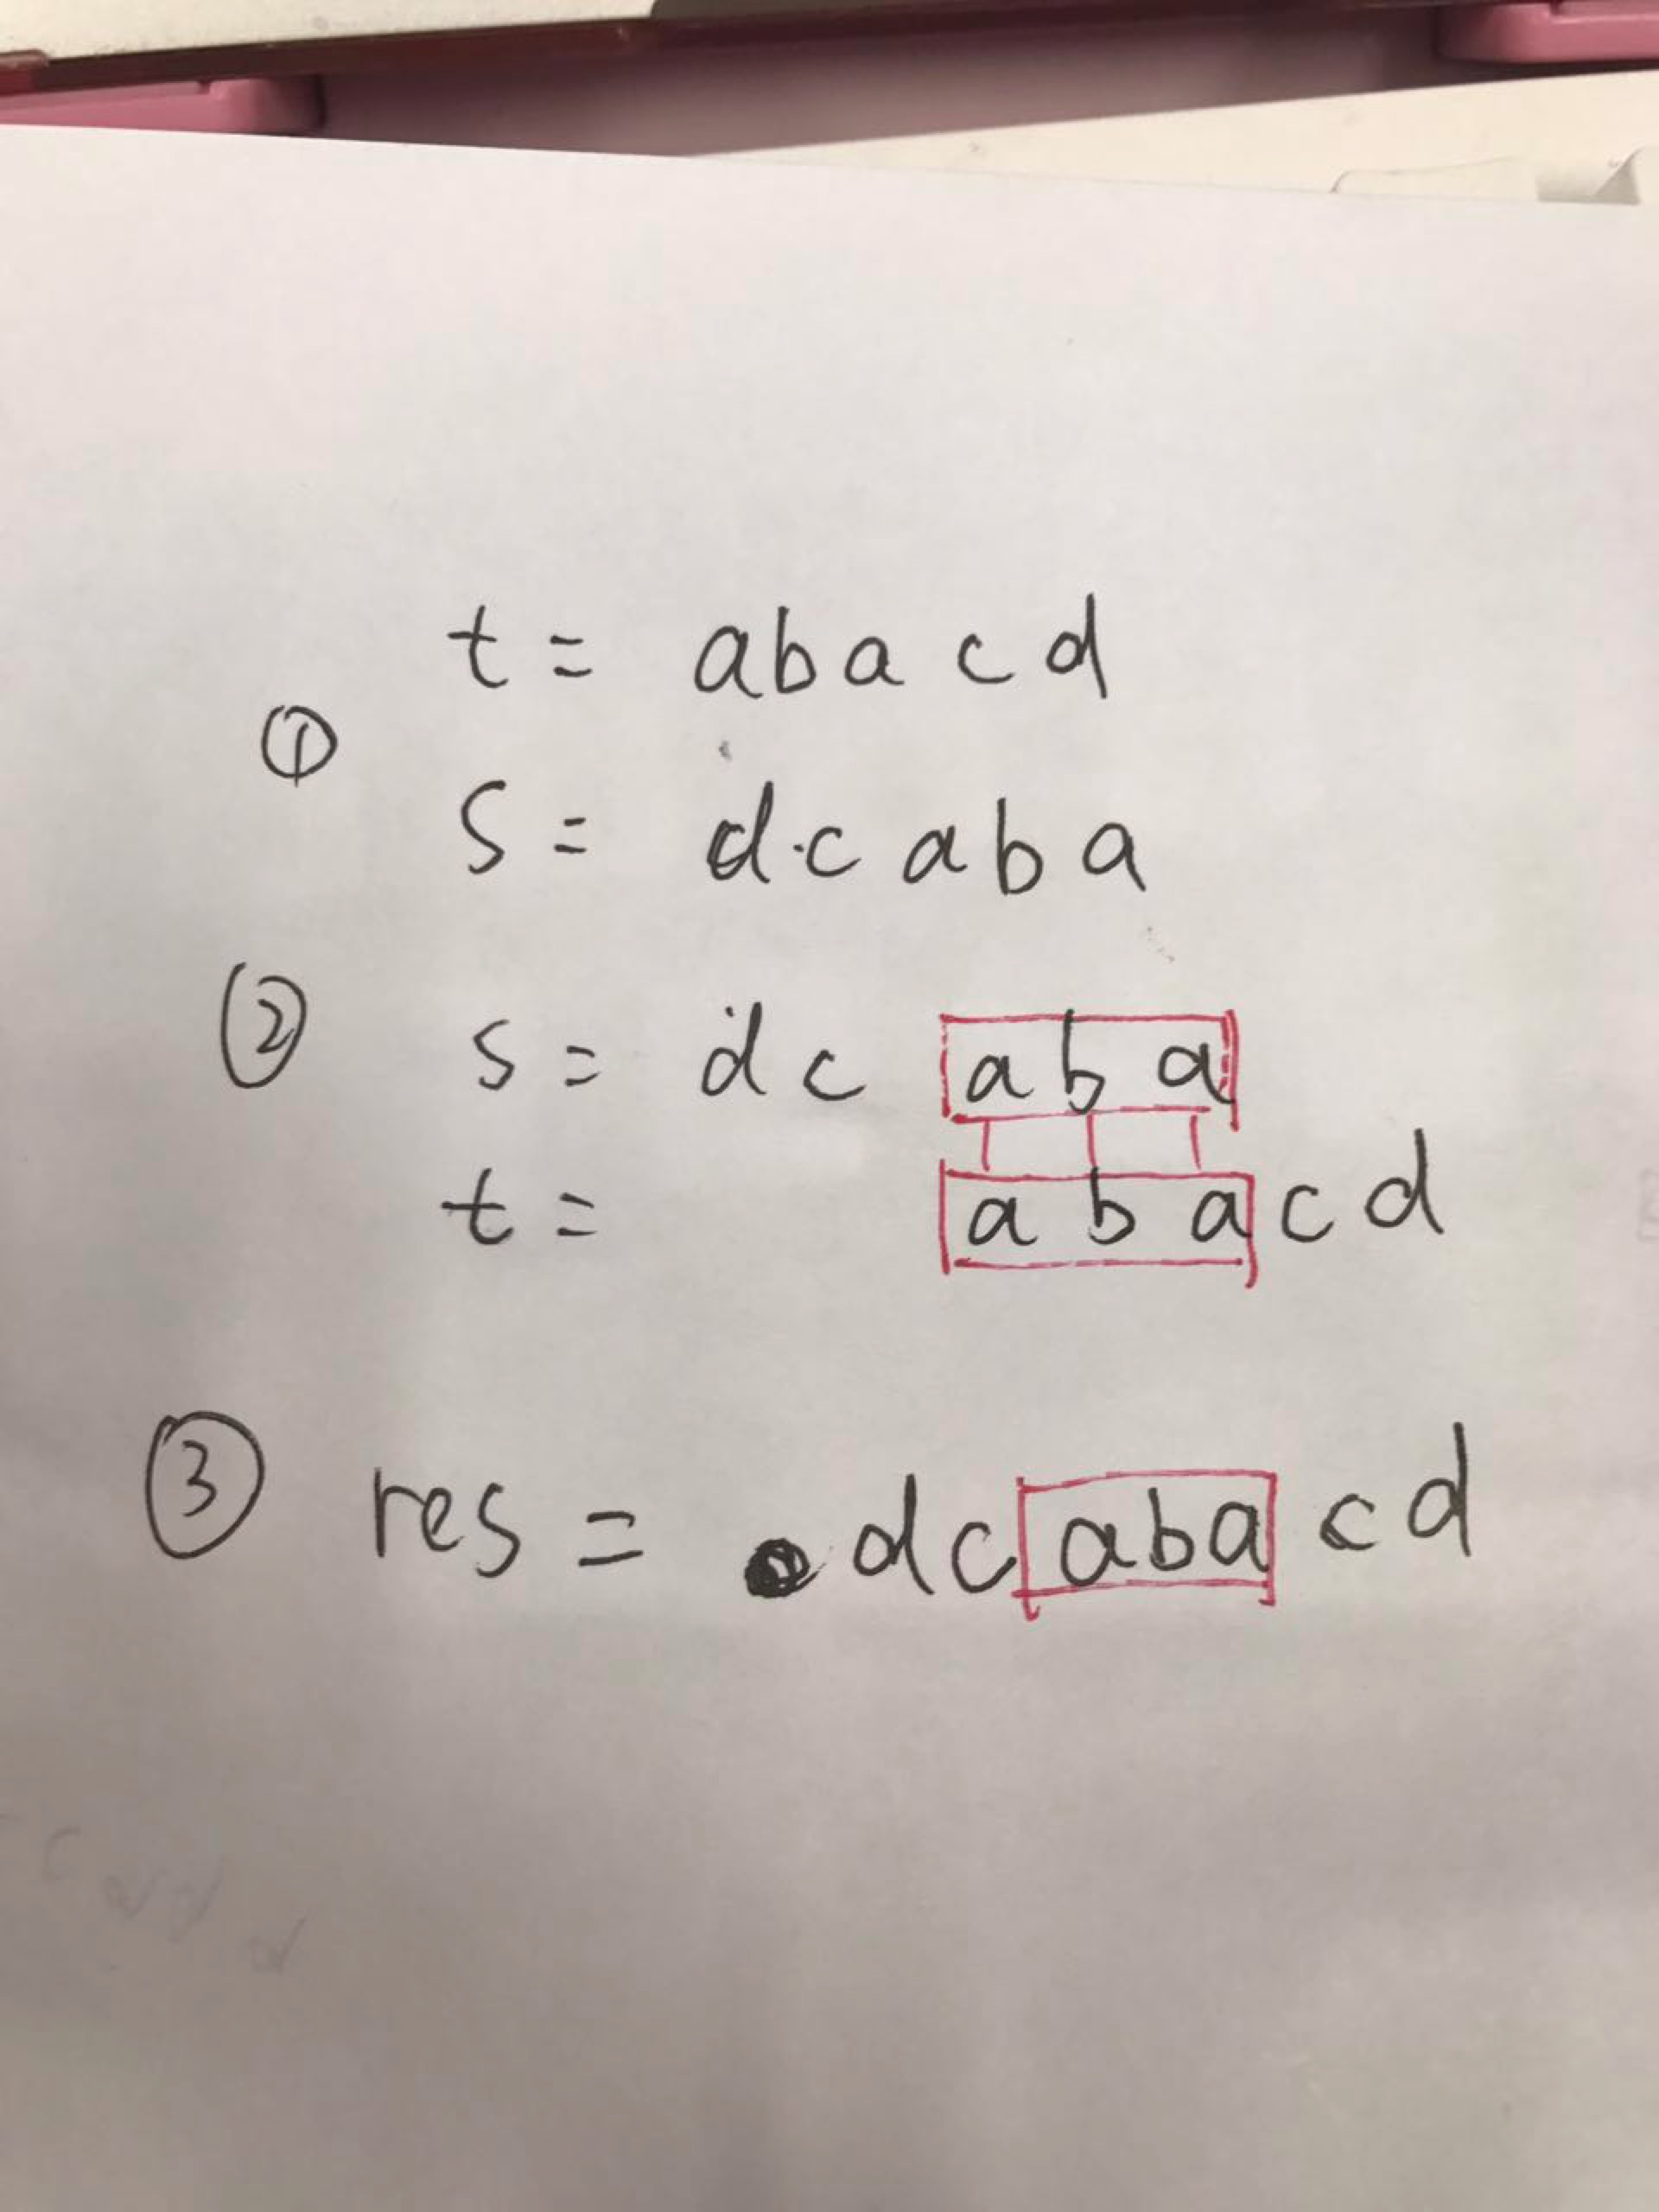 t = abacd
①
s = d.caba
② s = dc aba
t = abacd
③ res = dc aba cd